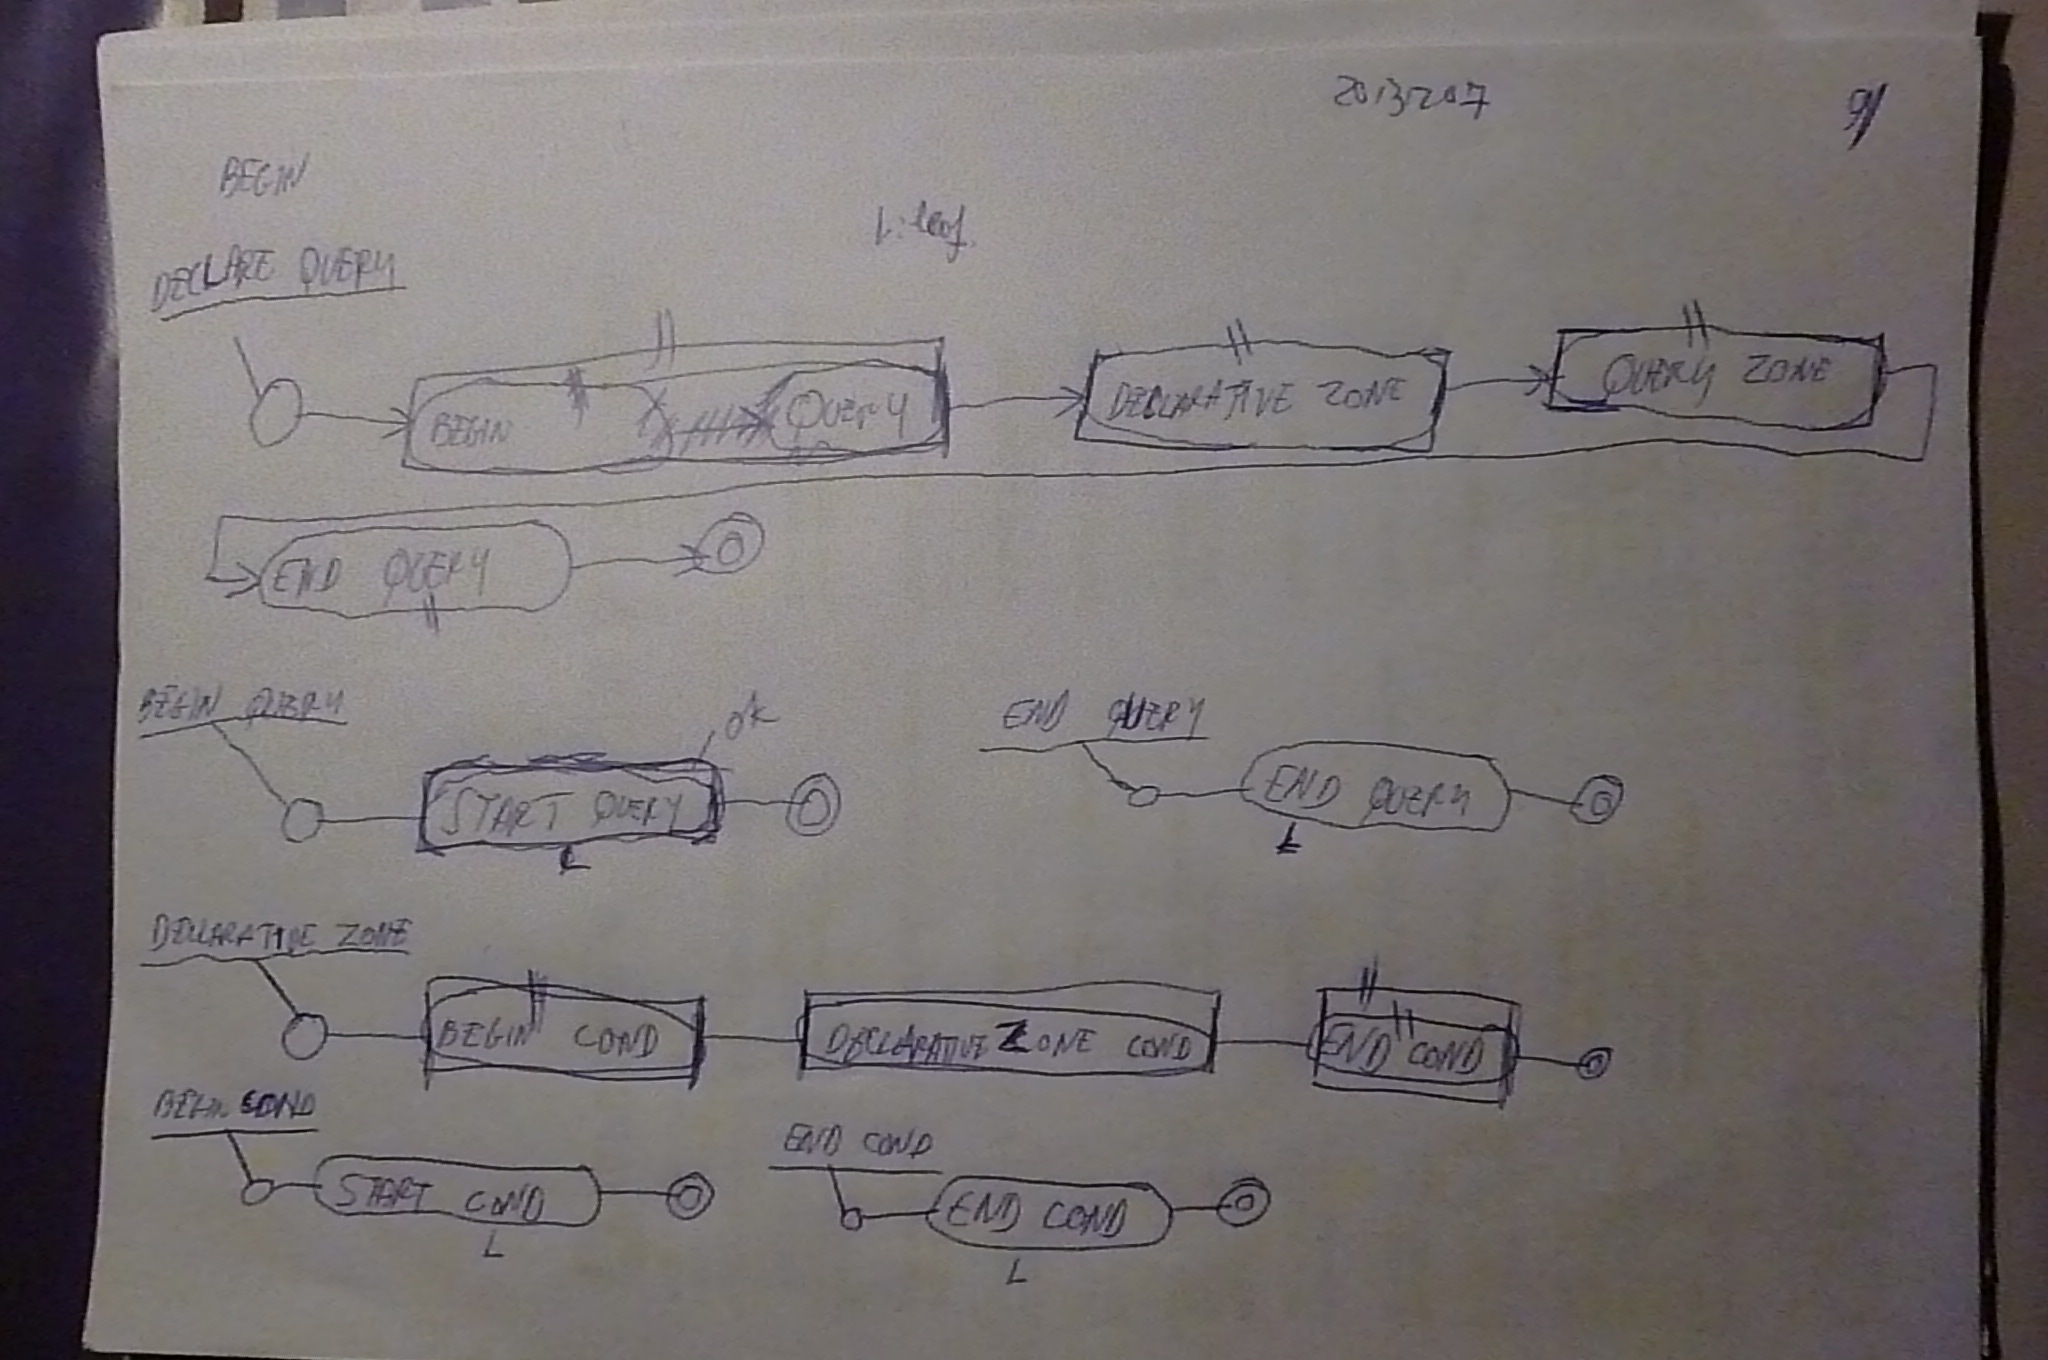 20131207
9/
BEGIN
L: leaf.
DECLARE QUERY
BEGIN QUERY
DECLARATIVE ZONE
QUERY ZONE
END QUERY
BEGIN QUERY
ok
START QUERY
L
END QUERY
END QUERY
L
DECLARATIVE ZONE
BEGIN COND
DECLARATIVE ZONE COND
END COND
BEGIN COND
START COND
L
END COND
END COND
L